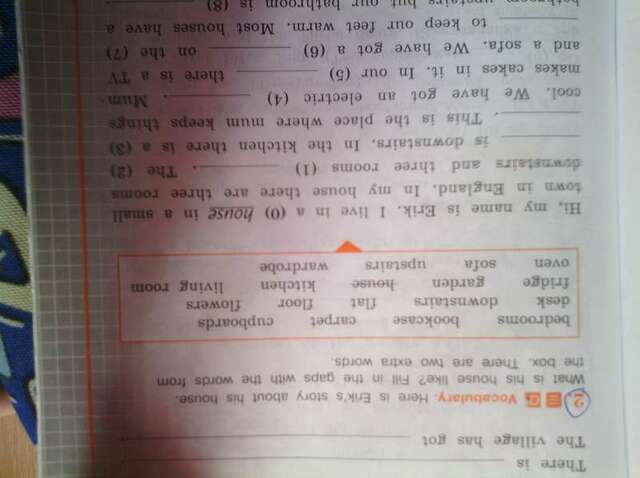 There is ____________
The village has got ____________
2. Vocabulary. Here is Erik's story about his house.
What is his house like? Fill in the gaps with the words from
the box. There are two extra words.
bedrooms bookcase carpet cupboards
desk downstairs flat floor flowers
fridge garden house kitchen living room
oven sofa upstairs wardrobe
Hi, my name is Erik. I live in a (0) house in a small
town in England. In my house there are three rooms
downstairs and three rooms (1) ________. The (2)
________ is downstairs. In the kitchen there is a (3)
________. This is the place where mum keeps things
cool. We have got an electric (4) ________. Mum
makes cakes in it. In our (5) ________ there is a TV
and a sofa. We have got a (6) ________ on the (7)
________ to keep our feet warm. Most houses have a
bathroom upstairs but our bathroom is (8) ________